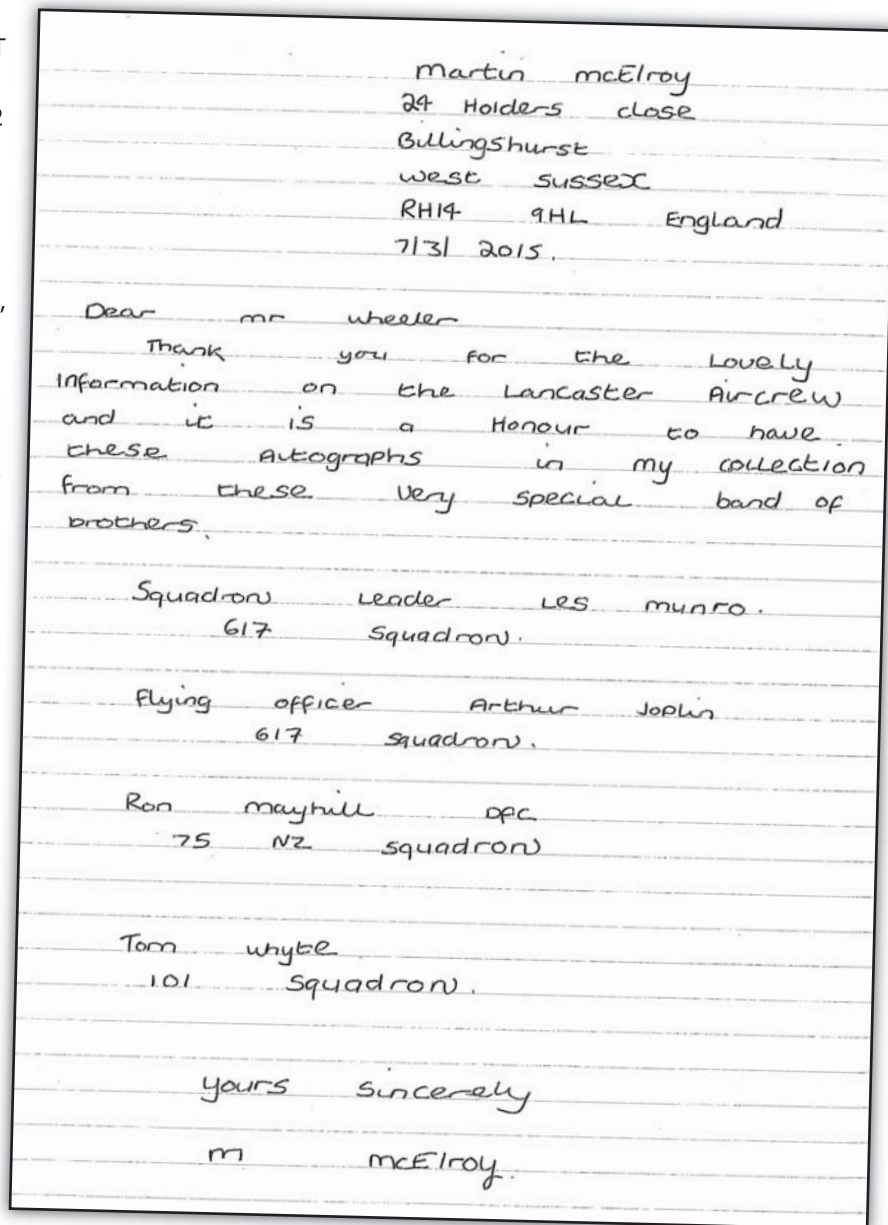 Martin McElroy
24 Holders close
Billingshurst
west sussex
RH14 9HL England
7/3/ 2015.
Dear mr wheeler
Thank you for the Lovely
Information on the Lancaster Aircrew
and it is a Honour to have
these Autographs in my collection
from these very special band of
brothers.
Squadron Leader Les munro.
617 Squadron.
Flying officer Arthur Joplin
617 squadron.
Ron mayhill DFC
75 NZ squadron
Tom whyte
101 Squadron.
yours sincerely
m mcElroy.